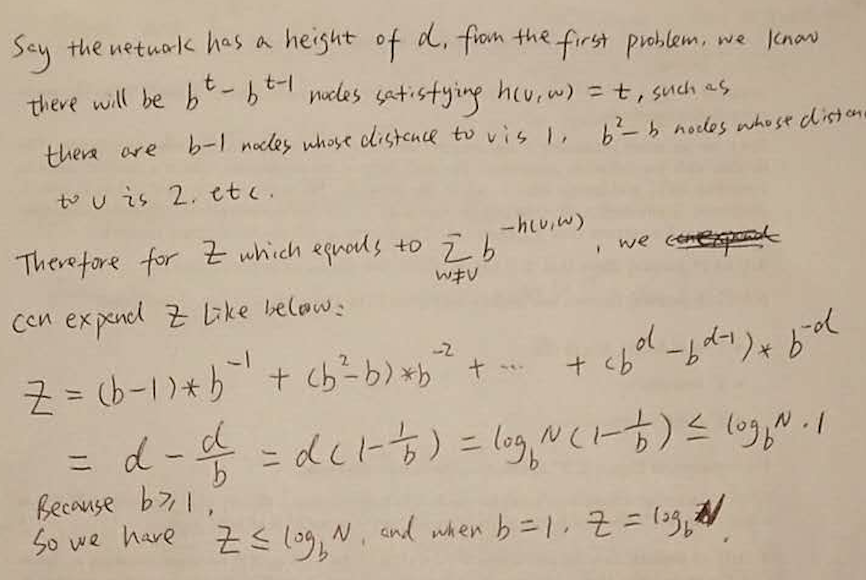 Say the network has a height of d, from the first problem, we know
there will be b^t - b^{t-1} nodes satisfying h(v,w) = t, such as
there are b-1 nodes whose distance to v is 1, b^2 - b nodes whose distan
to v is 2. etc.
Therefore for Z which equals to Σ_{w≠v} b^{-h(v,w)}, we
can expend Z like below:
Z = (b-1)*b^{-1} + (b^2-b)*b^{-2} + ... + (b^d - b^{d-1})*b^{-d}
= d - d/b = d(1 - 1/b) = log_b N (1 - 1/b) ≤ log_b N · 1
Because b ≥ 1,
So we have Z ≤ log_b N, and when b = 1, Z = log_b N.